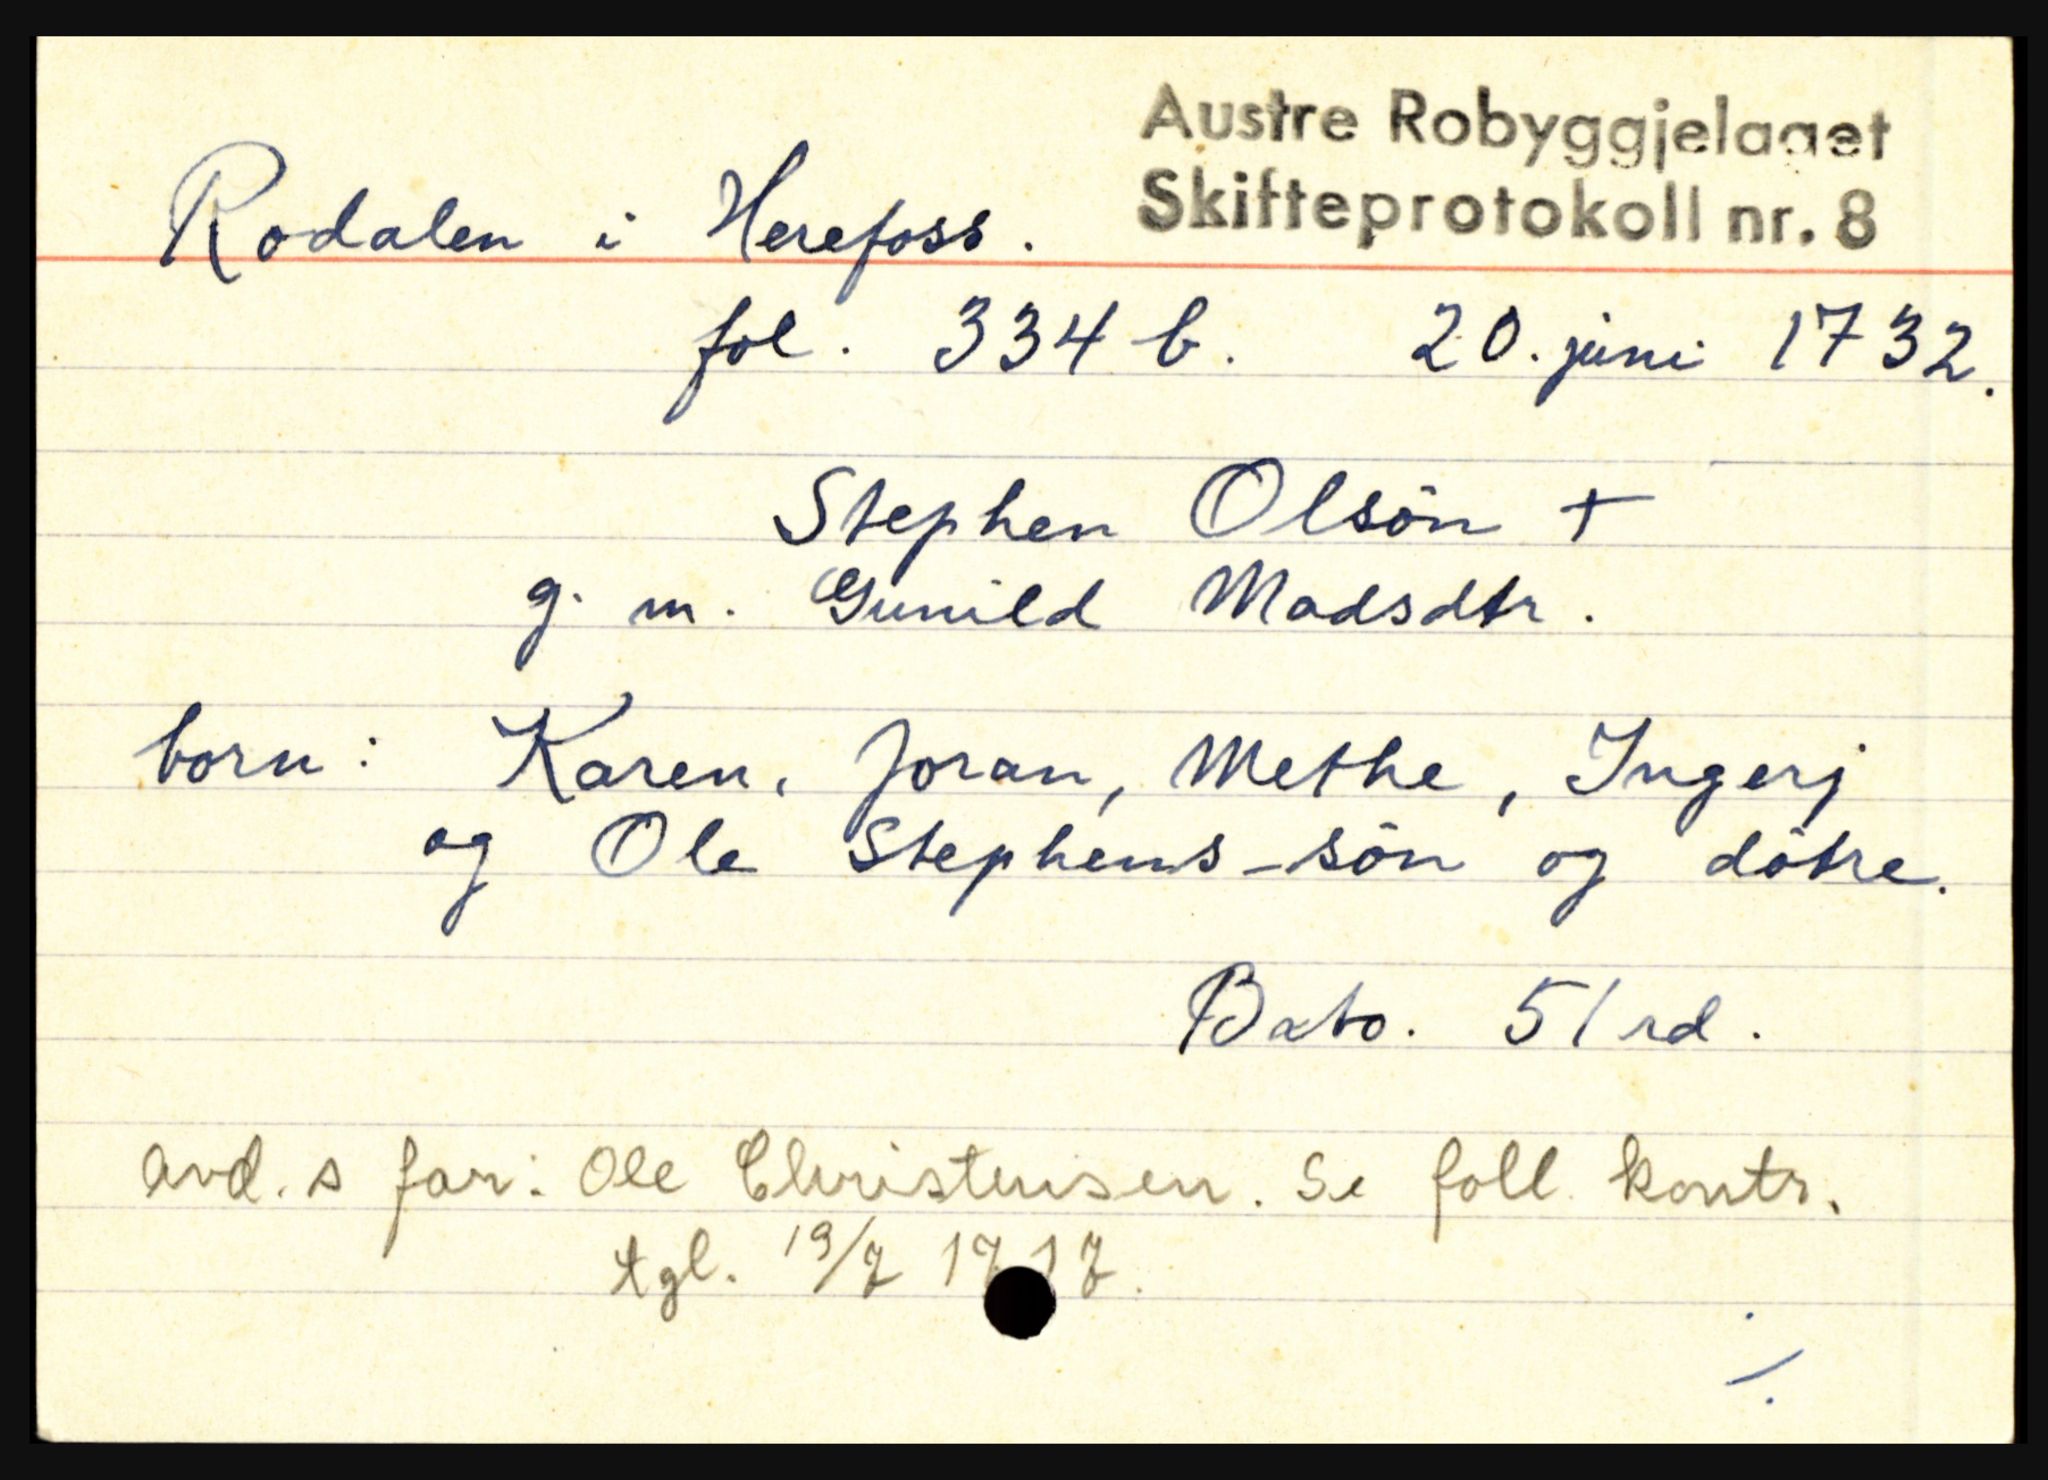 Austre Robyggjelaget
Skifteprotokoll nr. 8
Rodalen i Herefoss.
fol. 334 b. 20. juni 1732.
Stephen Olsön +
g. m. Gunild Madsdtr.
born: Karen, Joran, Methe, Ingerj
og Ole Stephens-sön og dötre.
Bxto. 51 rd.
avd. s far: Ole Christensen. Se foll. kontr.
tgl. 19/7 1717.